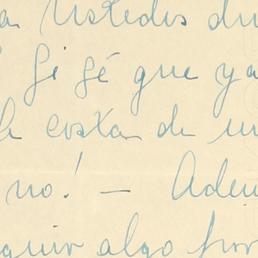 ustedes du
Si sé que ya
costar de un
no! — Adem
quir algo por